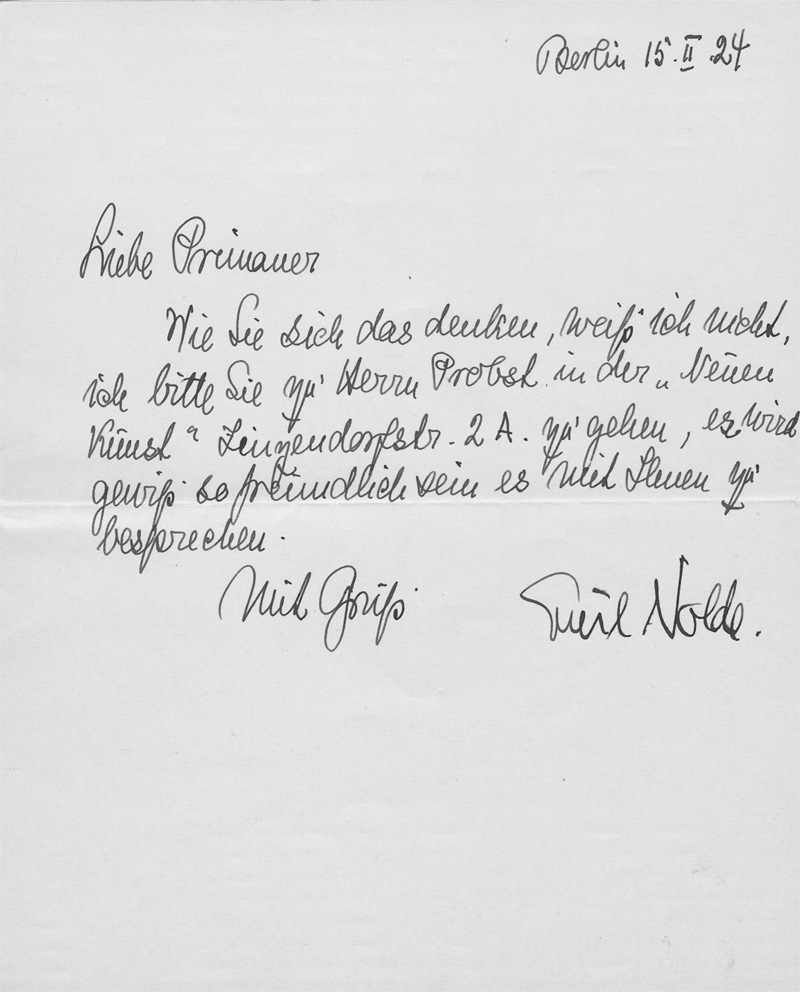 Berlin 15.II.24
Liebe Preinauer
Wie Sie sich das denken, weiß ich nicht,
ich bitte Sie zu Herrn Probst in der „Neuen
Kunst“ Zinzendorfstr. 2 A. zu gehen, er wird
gewiß so freundlich sein es mit Ihnen zu
besprechen.
Mit Gruß Emil Nolde.